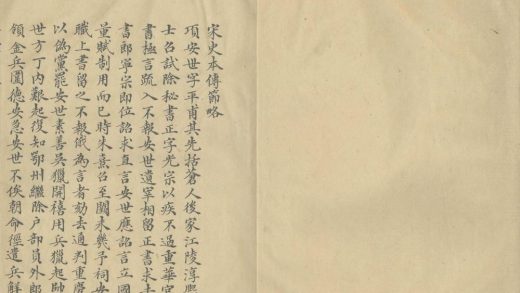 宋史本傳節略
項安世字平甫其先括蒼人後家江陵淳熙
士召試除秘書正字光宗以疾不過重華宮
書極言疏入不報安世遺宰相留正書求去
書郎寧宗即位詔求直言安世應詔言立國
量賦制用而已時朱熹召至闕未幾予祠安
職上書留之不報俄為言者劾去通判重慶
以偽黨罷安世素善吳獵開禧用兵獵起帥
世方丁內艱起復知鄂州繼除戶部員外郎
領金兵圍德安急安世不俟朝命徑遣兵解